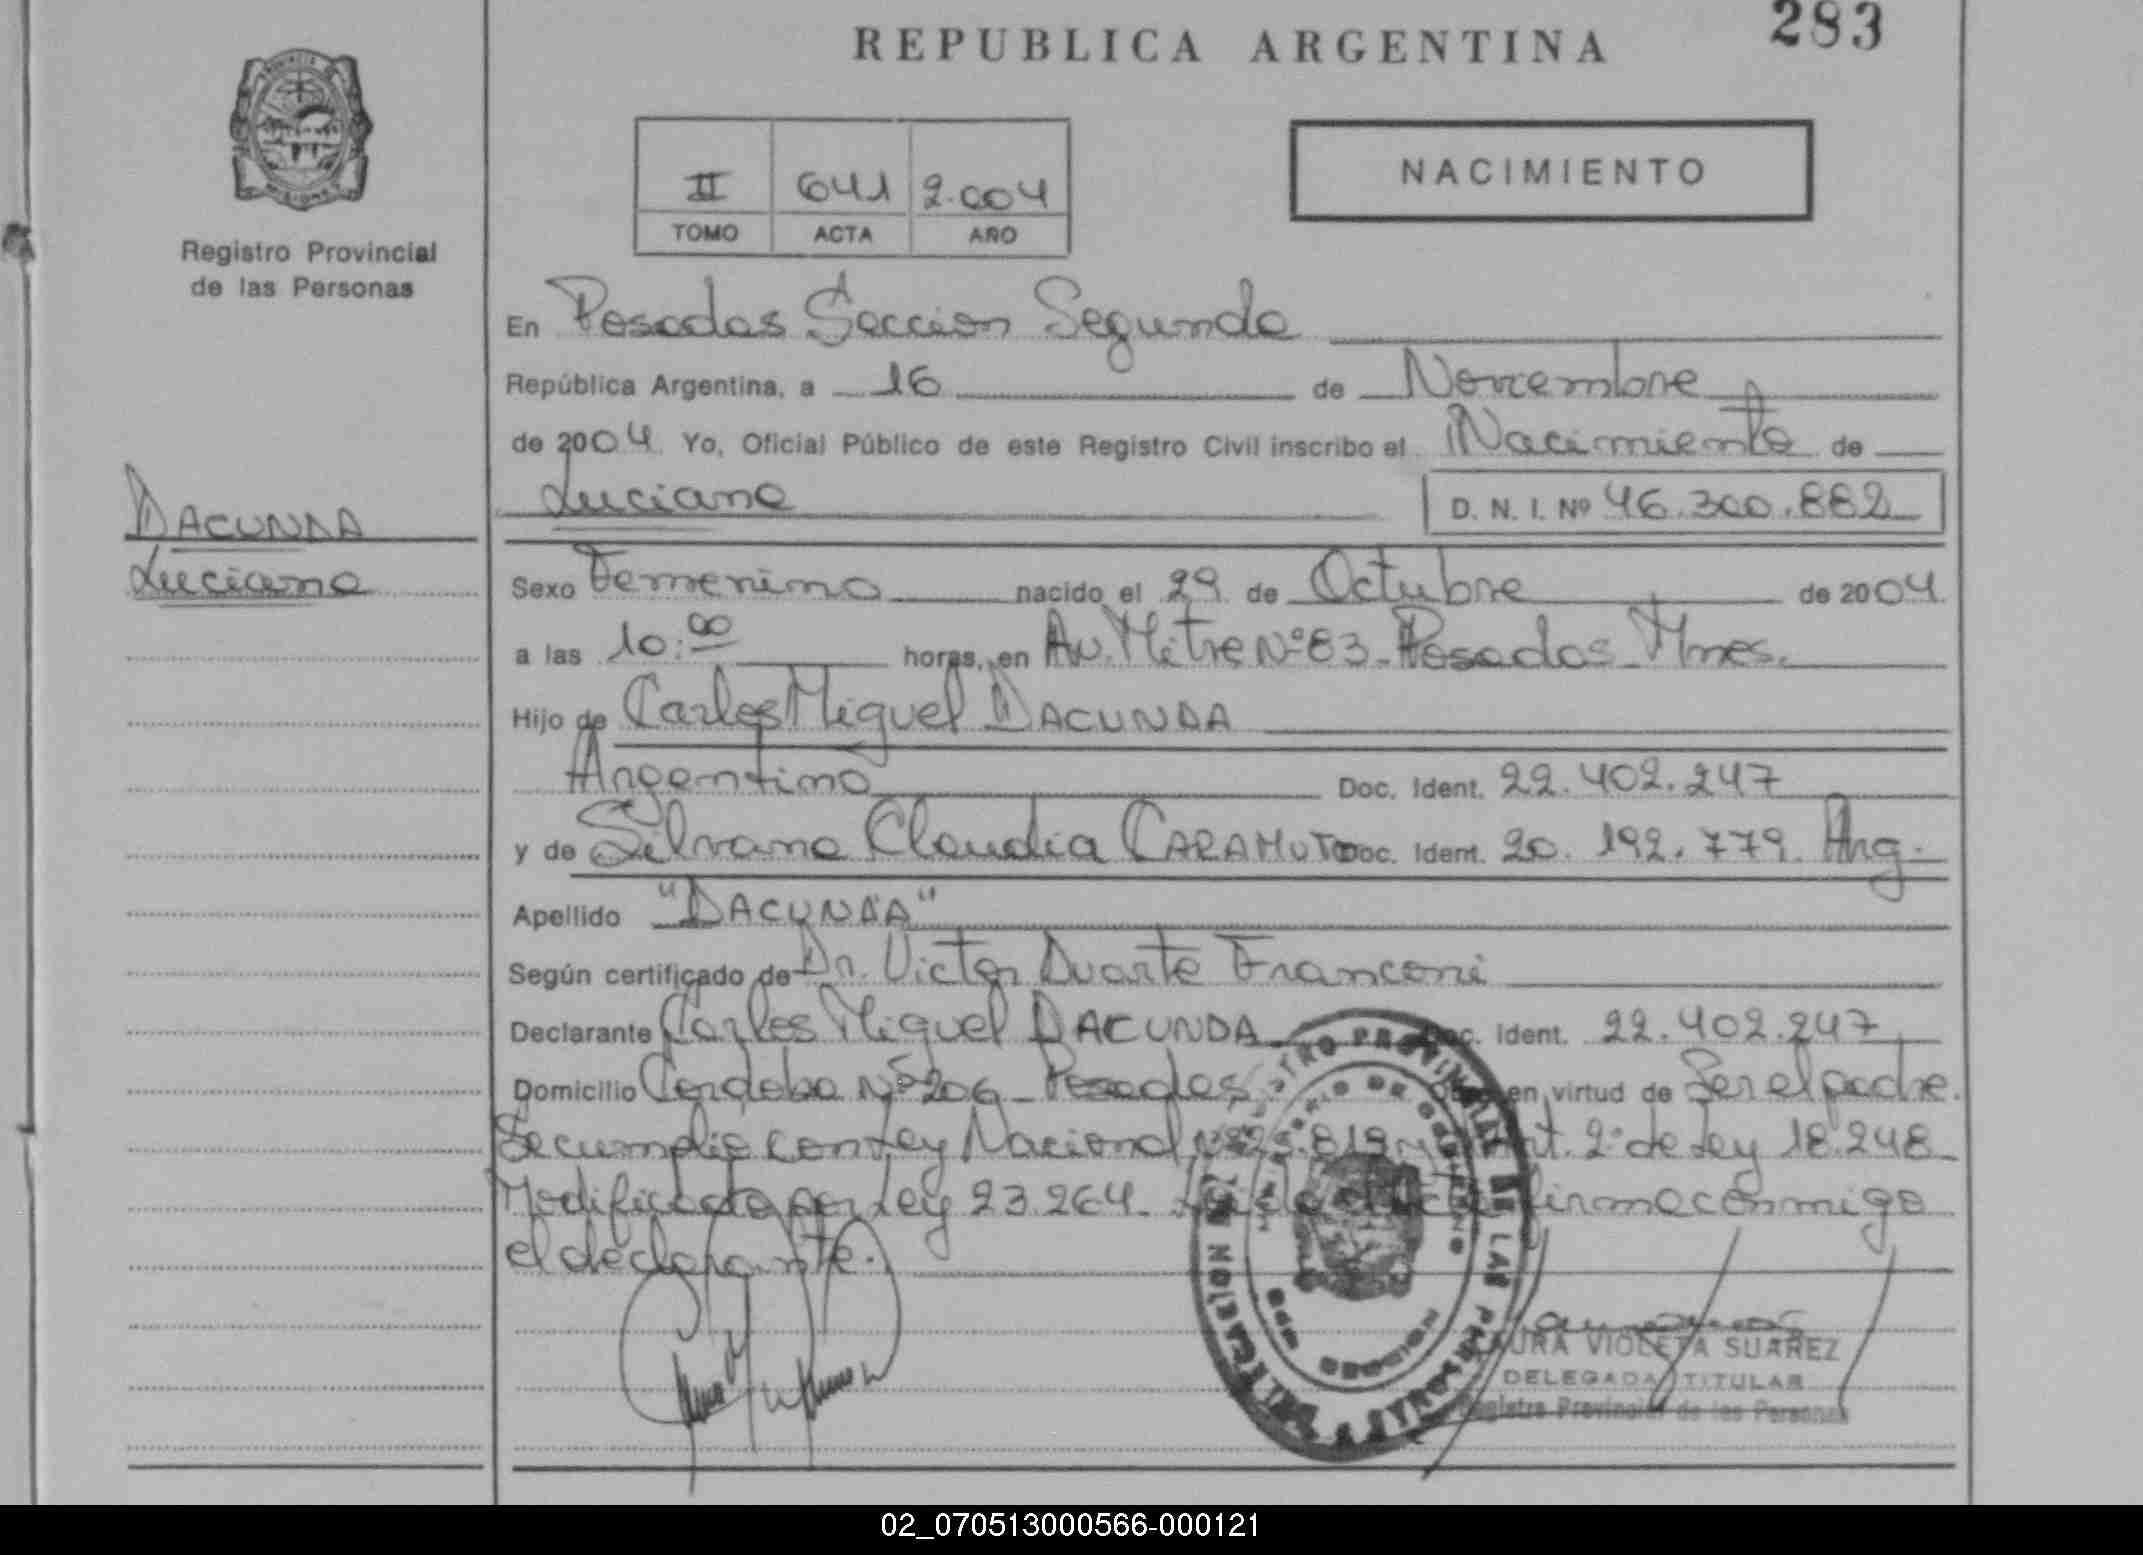 283
REPUBLICA ARGENTINA
NACIMIENTO
II 641 2.004
TOMO ACTA AÑO
Registro Provincial
de las Personas
En Posadas Seccion Segunda
República Argentina, a 16 de Noviembre
de 2004. Yo, Oficial Público de este Registro Civil inscribo el Nacimiento de
Luciana D. N. I. Nº 46.300.882
DACUNDA
Luciana
Sexo Femenino nacido el 29 de Octubre de 2004
a las 10:00 horas, en Av. Mitre Nº 83 - Posadas Mnes.
Hijo de Carlos Miguel DACUNDA
Argentino Doc. Ident. 22.402.247
y de Silvana Claudia CARAMUTO Doc. Ident. 20.192.779. Arg.
Apellido "DACUNDA"
Según certificado de Dr. Victor Duarte Franconi
Declarante Carlos Miguel DACUNDA Doc. Ident. 22.402.247
Domicilio Cordoba Nº 206 - Posadas en virtud de Ser el padre.
Se cumplio con Ley Nacional Nº 25.819 y Art. 2º de Ley 18.248
Modificada por Ley 23.264. Leida el acta firma conmigo
el declarante.
REGISTRO PROVINCIAL DE LAS PERSONAS
MINISTERIO DE GOBIERNO
LAURA VIOLETA SUAREZ
DELEGADA TITULAR
Registro Provincial de las Personas
02_070513000566-000121